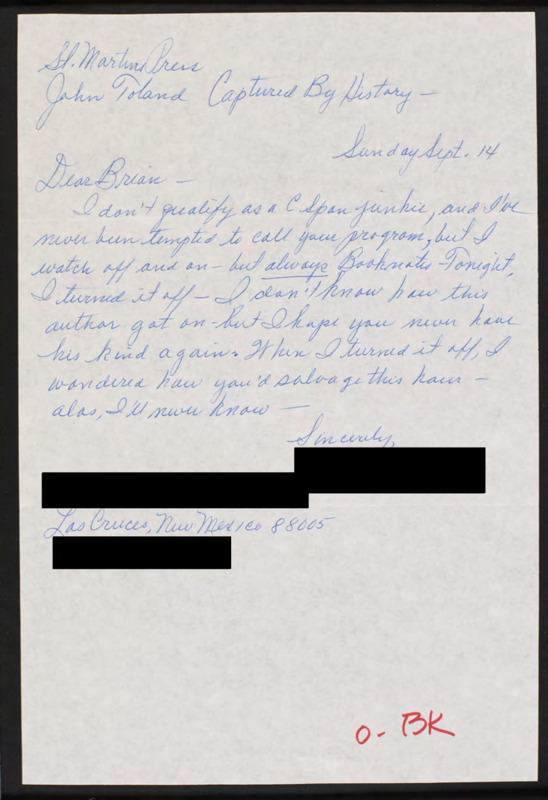 St. Martins Press
John Toland Captured By History —
Sunday Sept. 14
Dear Brian —
I don't qualify as a C Span junkie, and I've
never been tempted to call your program, but I
watch off and on - but always Booknotes - Tonight,
I turned it off - I don't know how this
author got on - but I hope you never have
his kind again. When I turned it off, I
wondered how you'd salvage this hour -
alas, I'll never know —
Sincerely,
Las Cruces, New Mexico 88005
O - BK